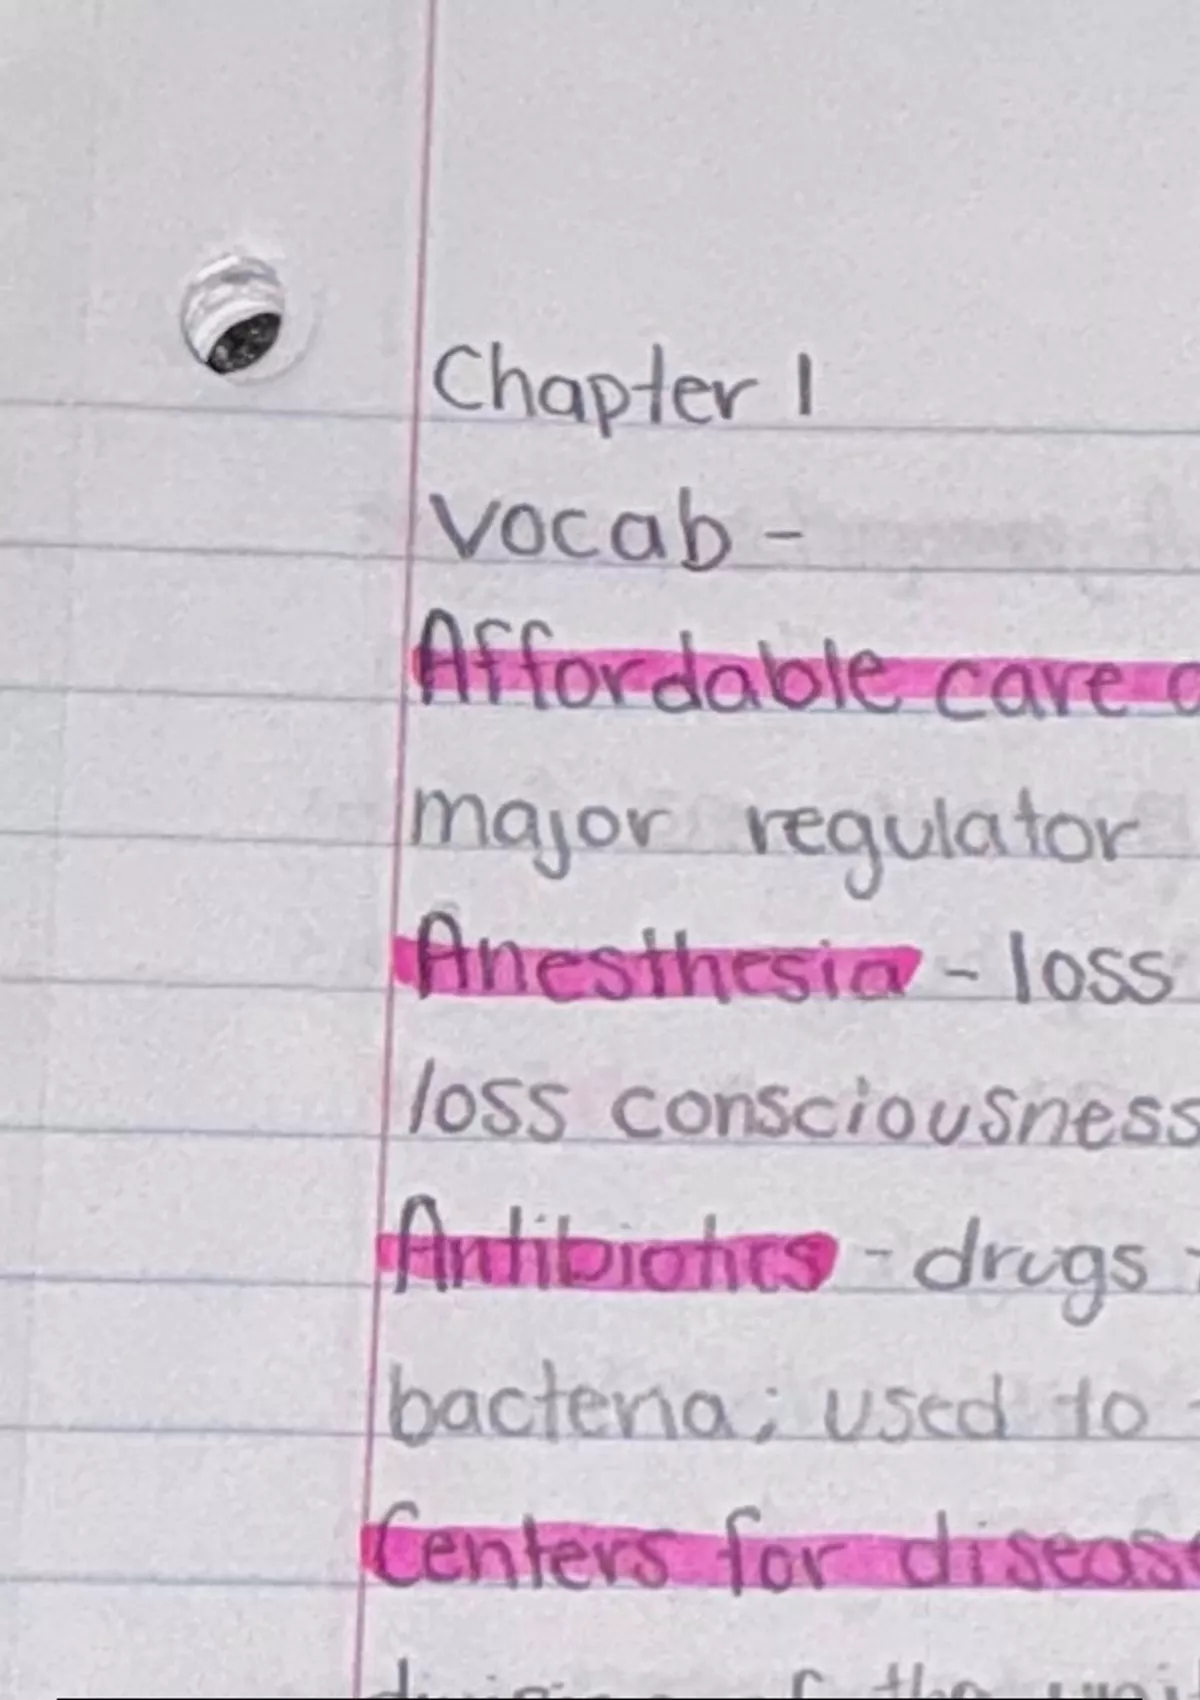 Chapter 1
Vocab -
Affordable care a
major regulator
Anesthesia - loss
loss consciousness
Antibiotics - drugs
bacteria; used to
Centers for diseas
of the